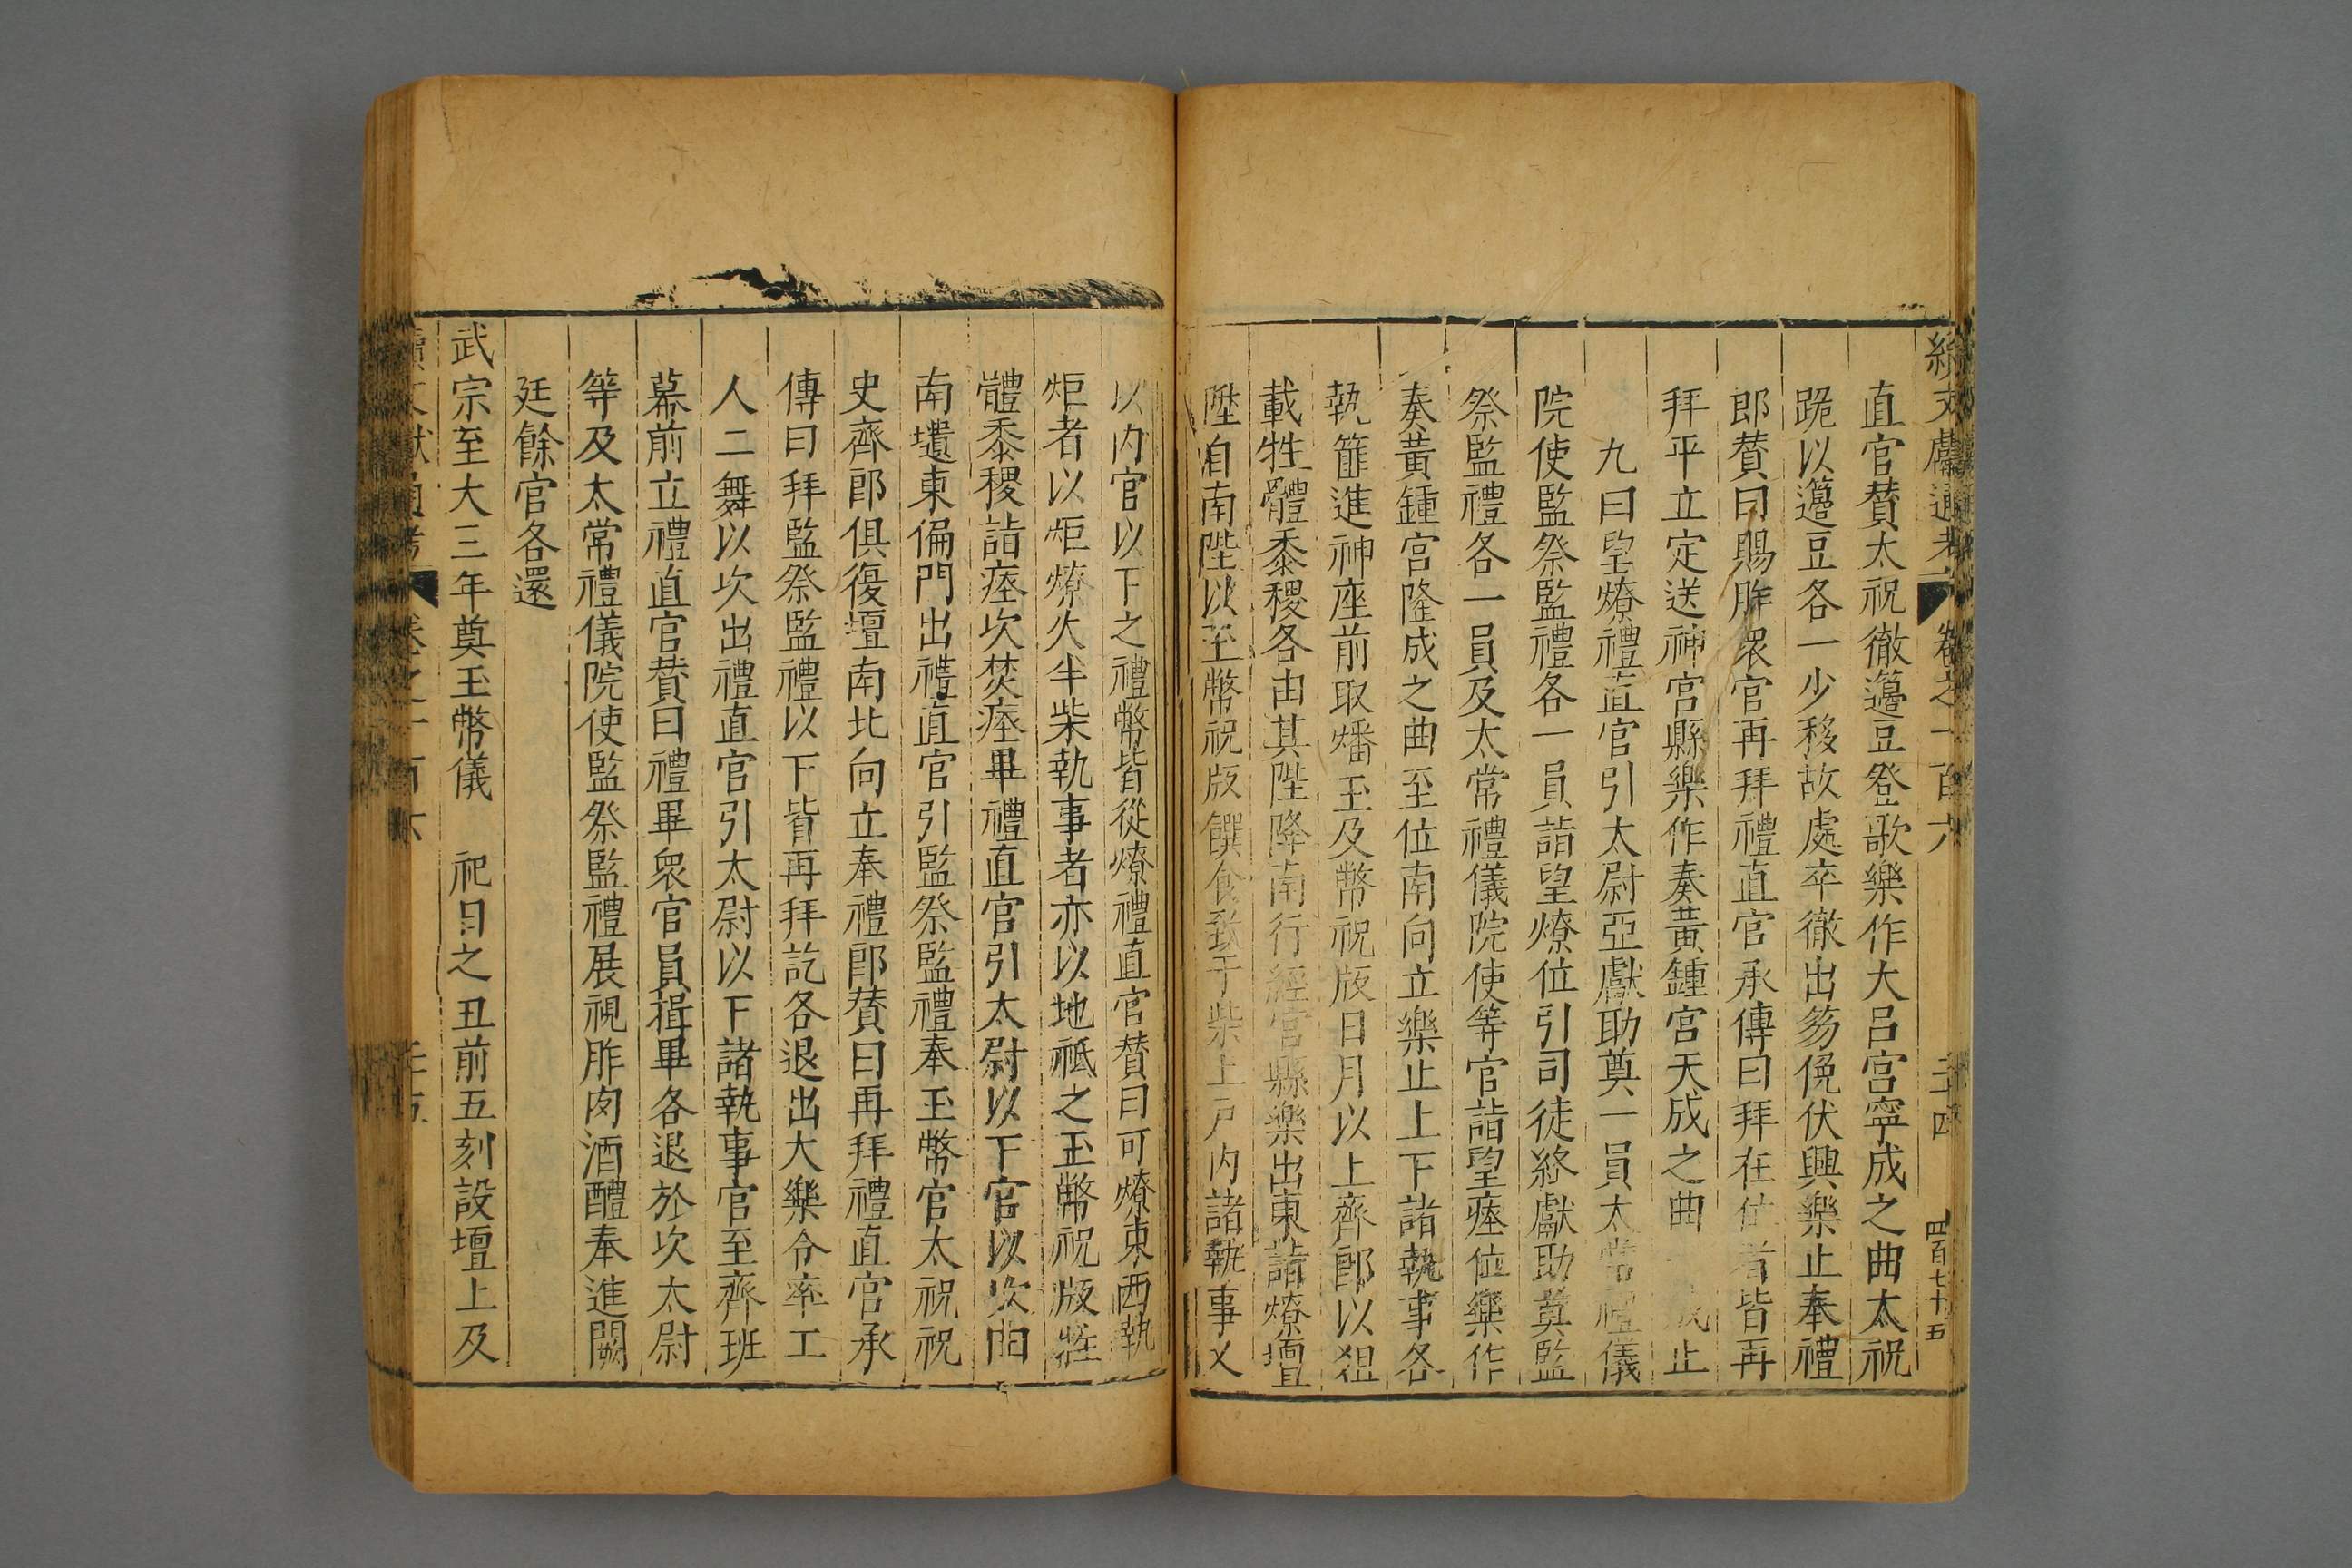 續文獻通考 卷之一百六 二十四 四百七十五
直官贊太祝徹籩豆登歌樂作大呂宮寧成之曲太祝
跪以籩豆各一少移故處卒徹出笏俛伏興樂止奉禮
郎贊曰賜胙衆官再拜禮直官承傳曰拜在位者皆再
拜平立定送神宮縣樂作奏黃鍾宮天成之曲一成止
九曰望燎禮直官引太尉亞獻助奠一員太常禮儀
院使監祭監禮各一員詣望燎位引司徒終獻助奠監
祭監禮各一員及太常禮儀院使等官詣望瘞位樂作
奏黃鍾宮隆成之曲至位南向立樂止上下諸執事各
執篚進神座前取燔玉及幣祝版日月以上齊郎以俎
載牲體黍稷各由其陛降南行經宮縣樂出東詣燎壇
陞自南陛以玉幣祝版饌食致于柴上戶內諸執事又
以內官以下之禮幣皆從燎禮直官贊曰可燎東西執
炬者以炬燎火半柴執事者亦以地祗之玉幣祝版牲
體黍稷詣瘞坎焚瘞畢禮直官引太尉以下官以次由
南壝東偏門出禮直官引監祭監禮奉玉幣官太祝祝
史齊郎俱復壇南北向立奉禮郎贊曰再拜禮直官承
傳曰拜監祭監禮以下皆再拜訖各退出大樂令率工
人二舞以次出禮直官引太尉以下諸執事官至齊班
幕前立禮直官贊曰禮畢衆官員揖畢各退於次太尉
等及太常禮儀院使監祭監禮展視胙肉酒醴奉進闕
廷餘官各還
武宗至大三年奠玉幣儀 祀日之丑前五刻設壇上及
續文獻通考 卷之一百六 二十五